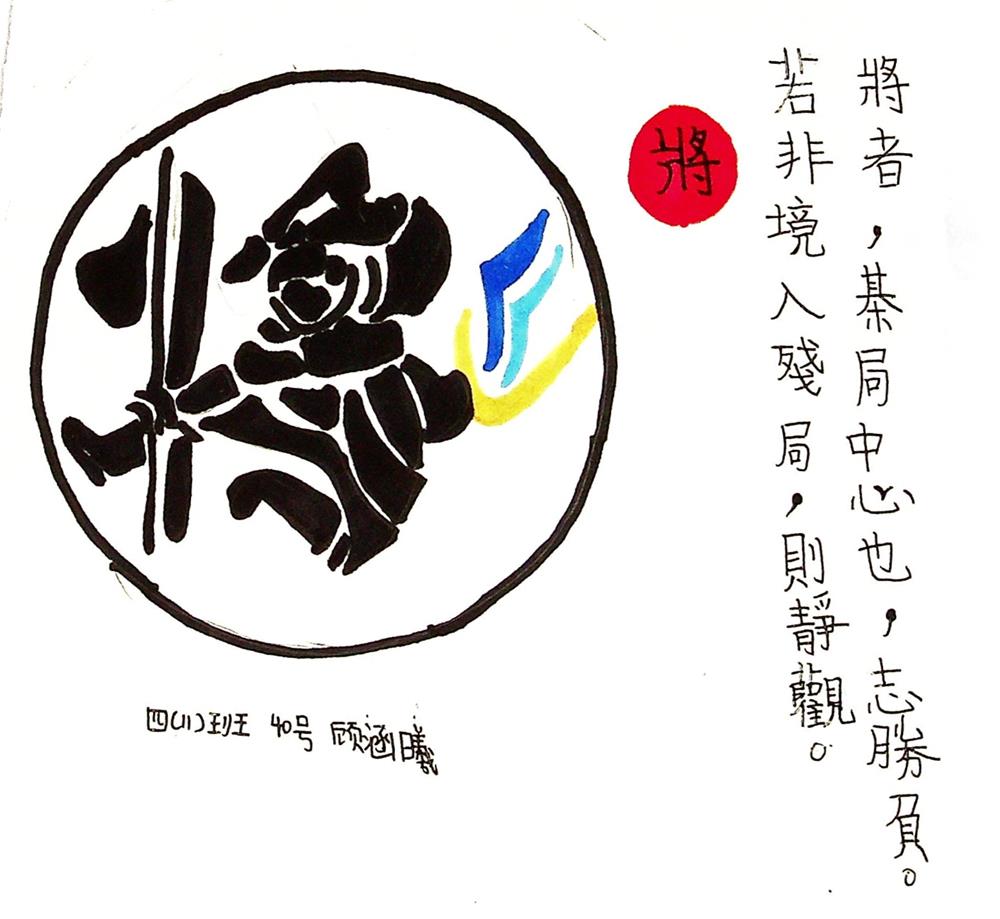 將者，棊局中心也，志勝負。
若非境入殘局，則靜觀。
將
四(11)班 40号 顾涵曦